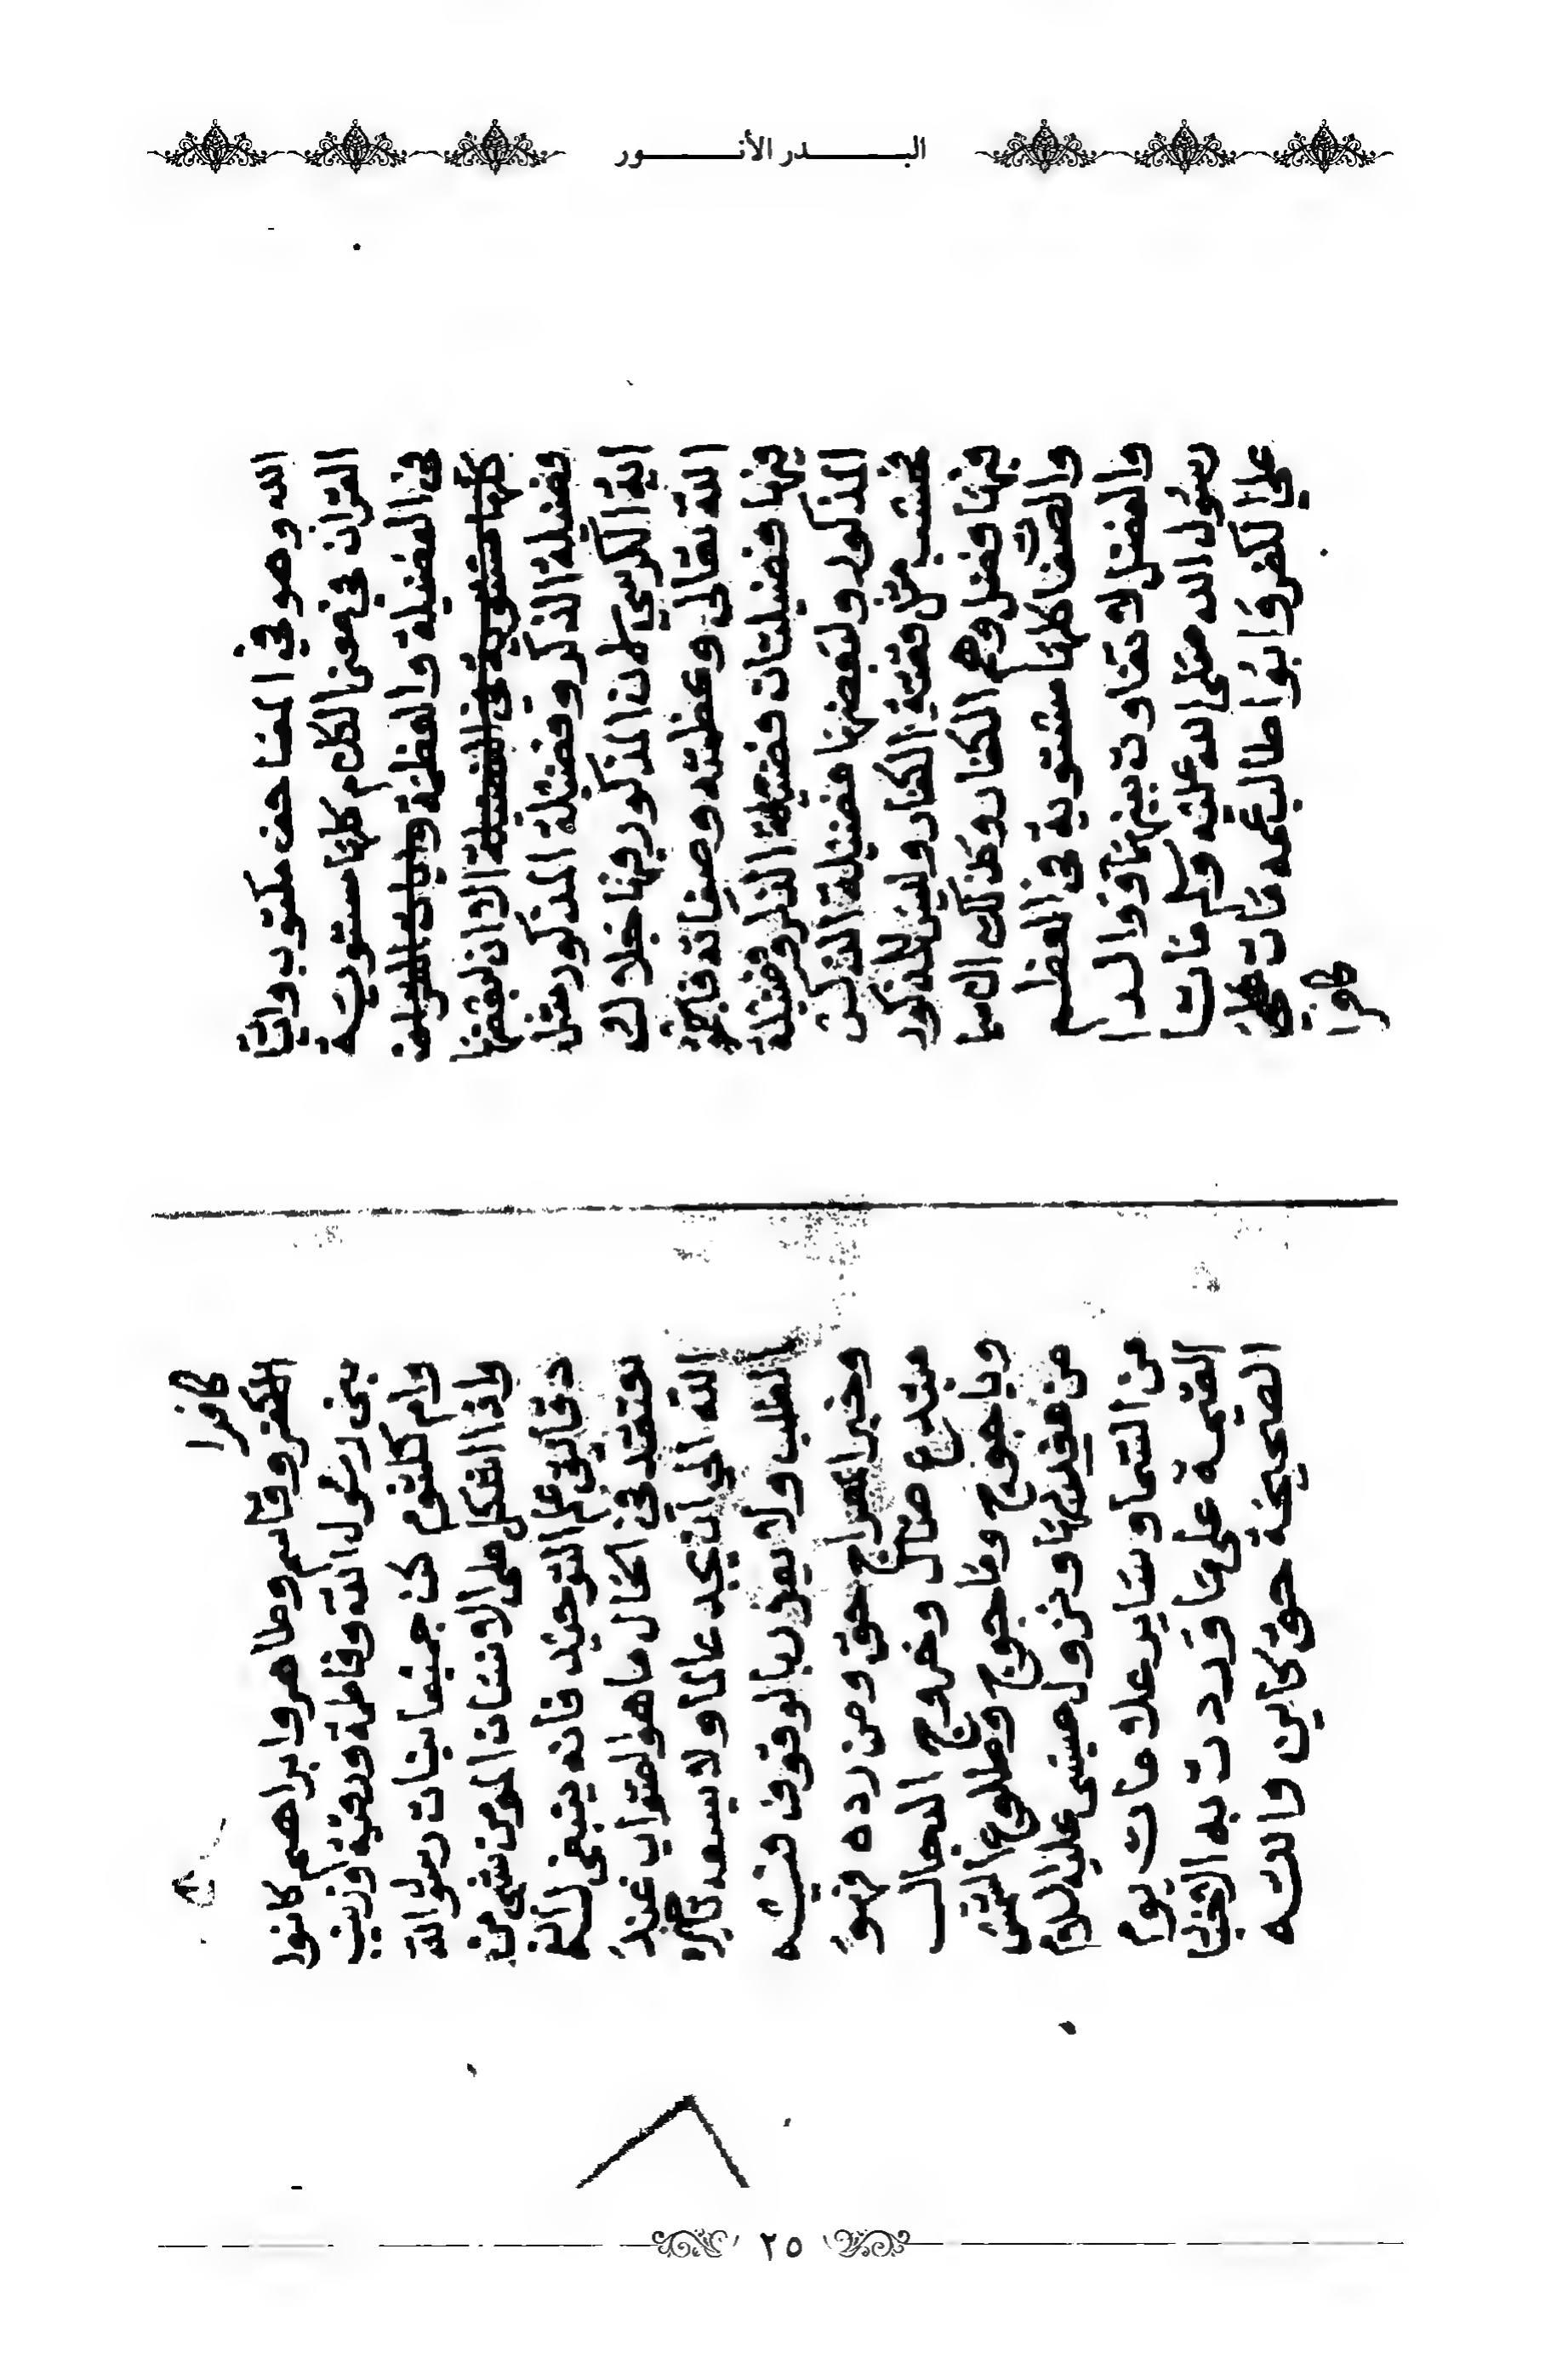 البدر الأنور
الله وهو في المصاحف مكتوب وايات
القران في معنى الكلام كلها مستوية
في الفضيلة والعظمة وايات القران
كلها مستوية في الفضيلة الا ان لبعضها
فضيلة الذكر وفضيلة المذكور مثل
اية الكرسي لان المذكور فيها جلال
الله تعالى وعظمته وصفاته فاجتمع
فيها فضيلتان فضيلة الذكر وفضيلة
المذكور ولبعضها فضيلة الذكر
فحسب مثل قصة الكفار وليس للمذكور
فيها فضل وهم الكفار وكذلك الاسما
والصفات كلها مستوية في العظم
والفضل لا تفاوت بينها ووالدا
رسول الله صلى الله عليه وسلم ماتا
على الكفر وابوا طالب عمه مات
كافرا
الكفر وقاسم وطاهر وابراهيم كانوا
بني رسول الله وفاطمة ورقية وزينب
وام كلثوم كن جميعا بنات رسول الله
واذا اشكل على الانسان المومن شي من
دقايق علم التوحيد فانه ينبغي له ان
يعتقد في الحال ما هو الصواب عند
الله الى ان يجد عالما ولا يسعه تاخير
الطلب ولا يعذر بالوقوف فيه
وخبر المعراج حق ومن رده فهو
مبتدع ضال وخروج الدجال
وياجوج وماجوج وطلوع الشمس
من مغربها ونزول عيسى عليه السلام
من السما وساير علامات يوم
القيمة على ما وردت به الاخبار
الصحيحة حق كاين والله
٢٥